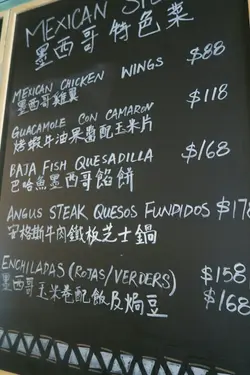 MEXICAN
墨西哥特色菜
MEXICAN CHICKEN WINGS $88
墨西哥雞翼
GUACAMOLE CON CAMARON $118
烤蝦牛油果醬配玉米片
BAJA FISH QUESADILLA $168
巴哈魚墨西哥餡餅
ANGUS STEAK QUESOS FUNDIDOS $178
安格斯牛肉鐵板芝士鍋
ENCHILADAS (ROJAS/VERDERS) $158
墨西哥玉米卷配飯及焗豆 $168